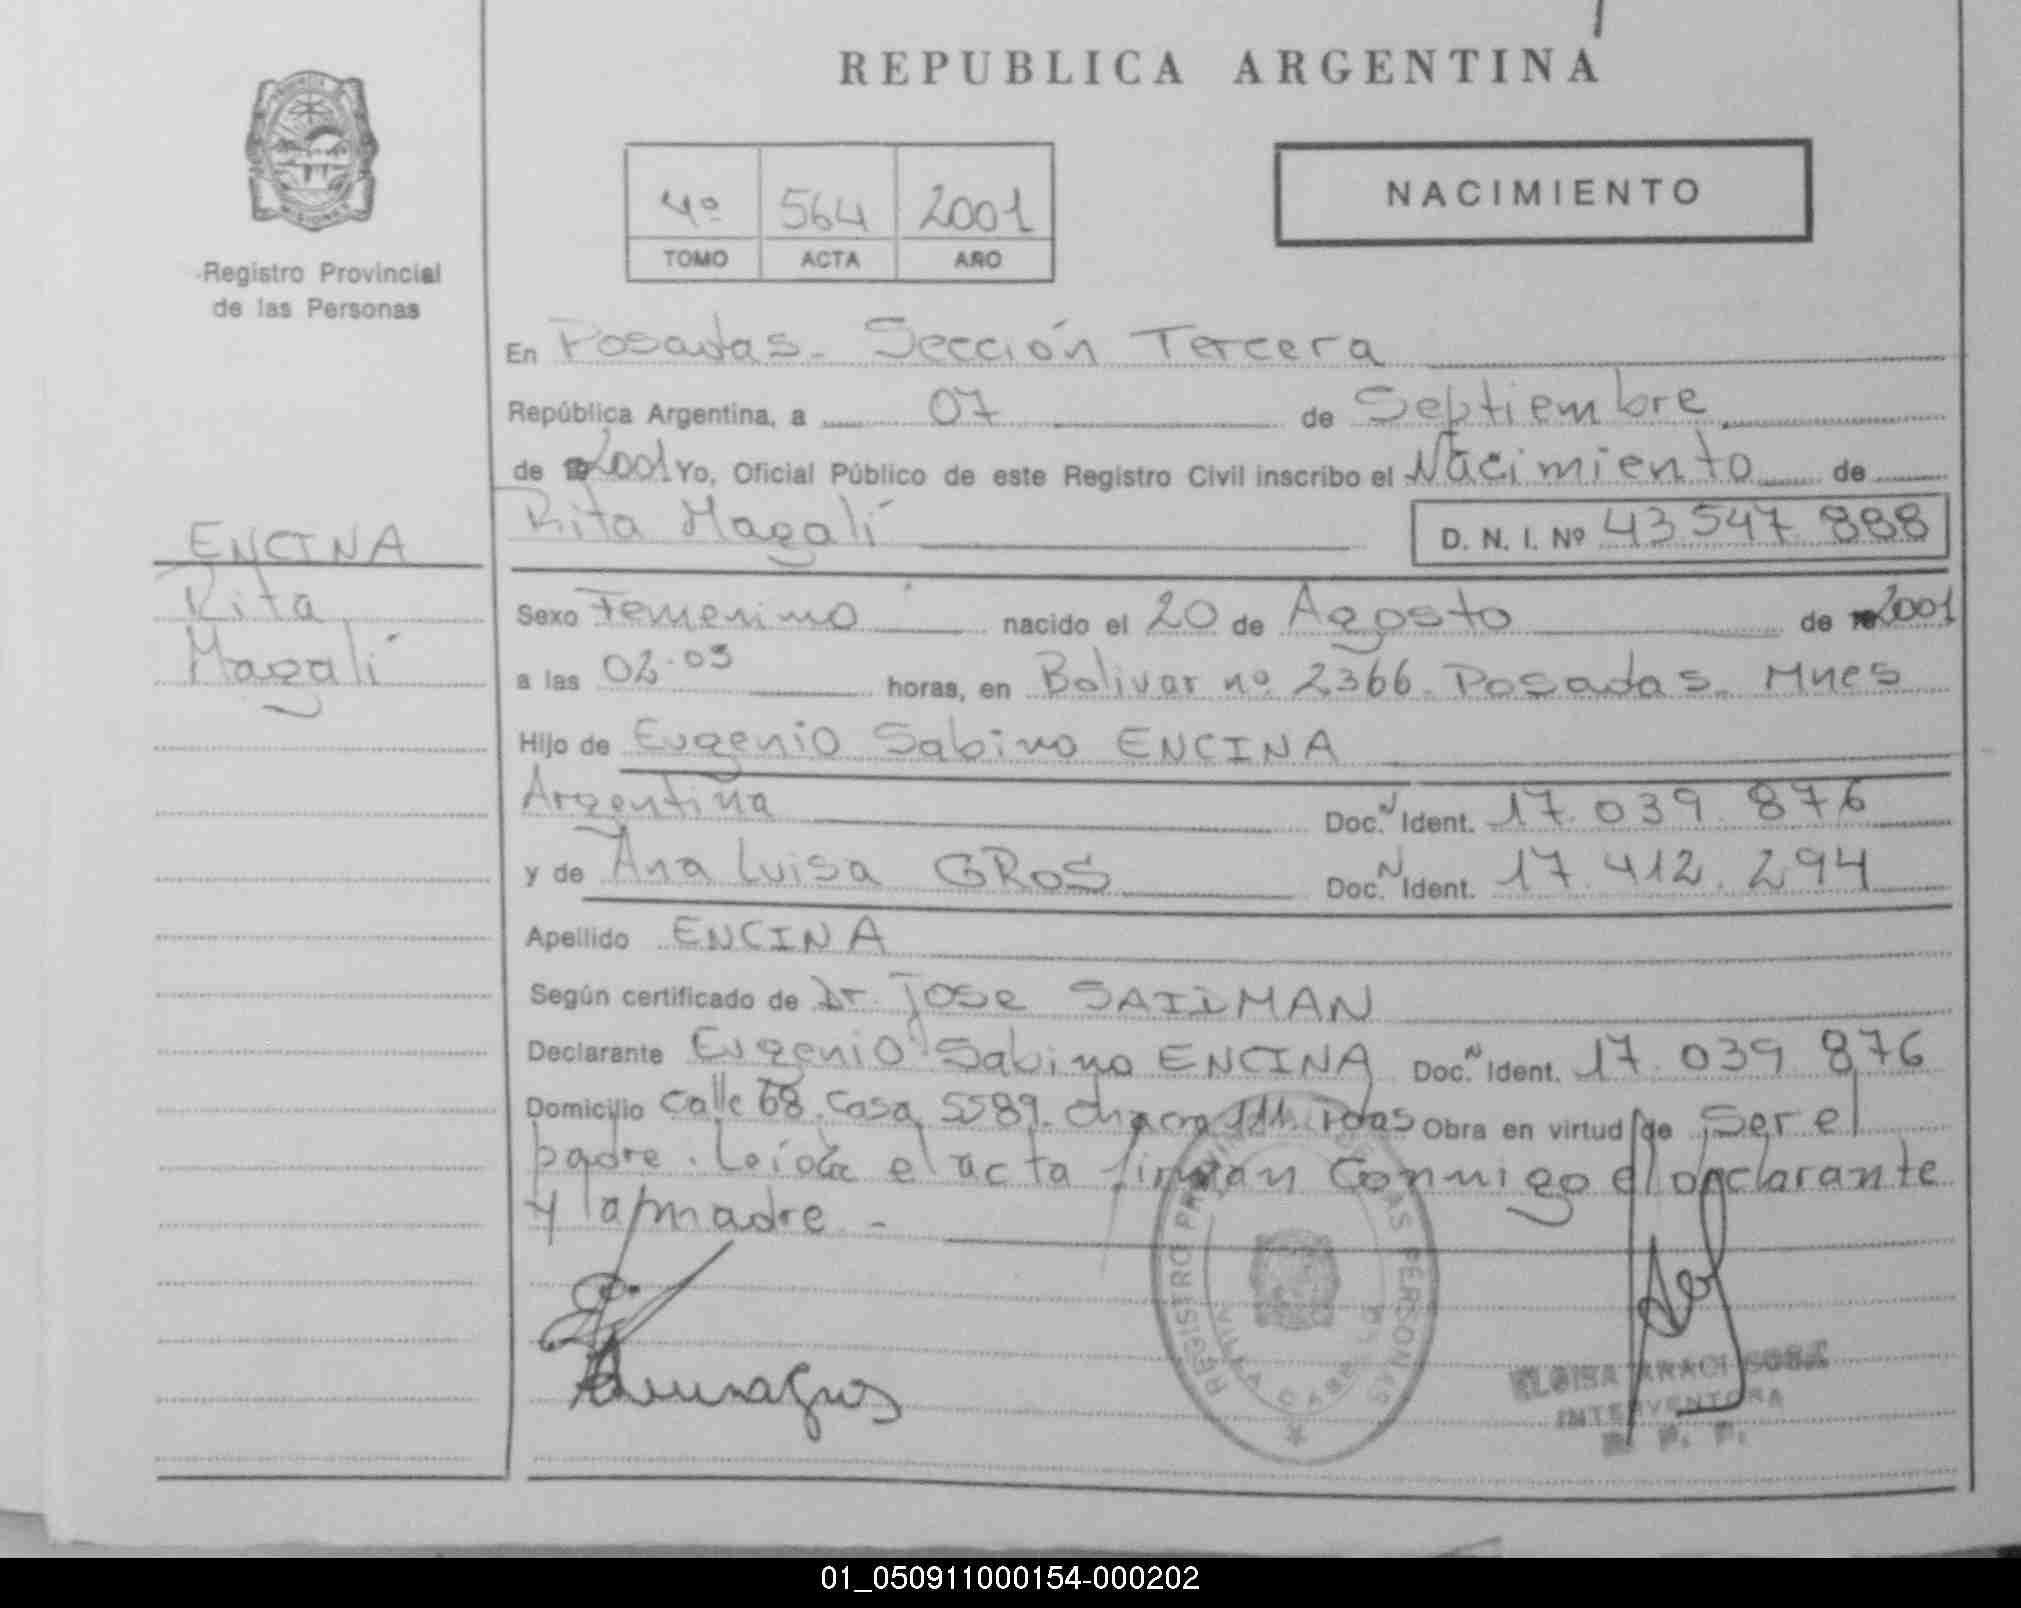 REPUBLICA ARGENTINA
NACIMIENTO
4º 564 2001
TOMO ACTA AÑO
Registro Provincial
de las Personas
ENCINA
Rita
Magalí
En Posadas - Sección Tercera
República Argentina, a 07 de Septiembre
de 2001 Yo, Oficial Público de este Registro Civil inscribo el Nacimiento de
Rita Magalí D. N. I. Nº 43 547 888
Sexo Femenino nacido el 20 de Agosto de 2001
a las 02.03 horas, en Bolivar nº 2366 Posadas. Mnes
Hijo de Eugenio Sabino ENCINA
Argentina Doc. N Ident. 17.039.876
y de Ana Luisa GROS Doc. N Ident. 17.412.294
Apellido ENCINA
Según certificado de Dr. Jose
Declarante Eugenio Sabino ENCINA Doc. N Ident. 17.039 876
Domicilio Calle 68. Casa 5589. Chacra Obra en virtud de Ser el
padre. Leída el acta firman Conmigo el declarante
y la madre -
REGISTRO PROVINCIAL DE LAS PERSONAS
INTERVENTORA
R. P. P.
01_050911000154-000202